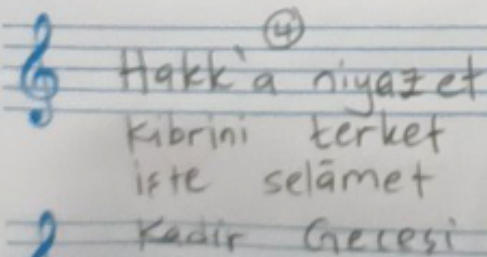 ④
Hakk'a niyazet
kibrini terket
işte selāmet
Kadir Gecesi